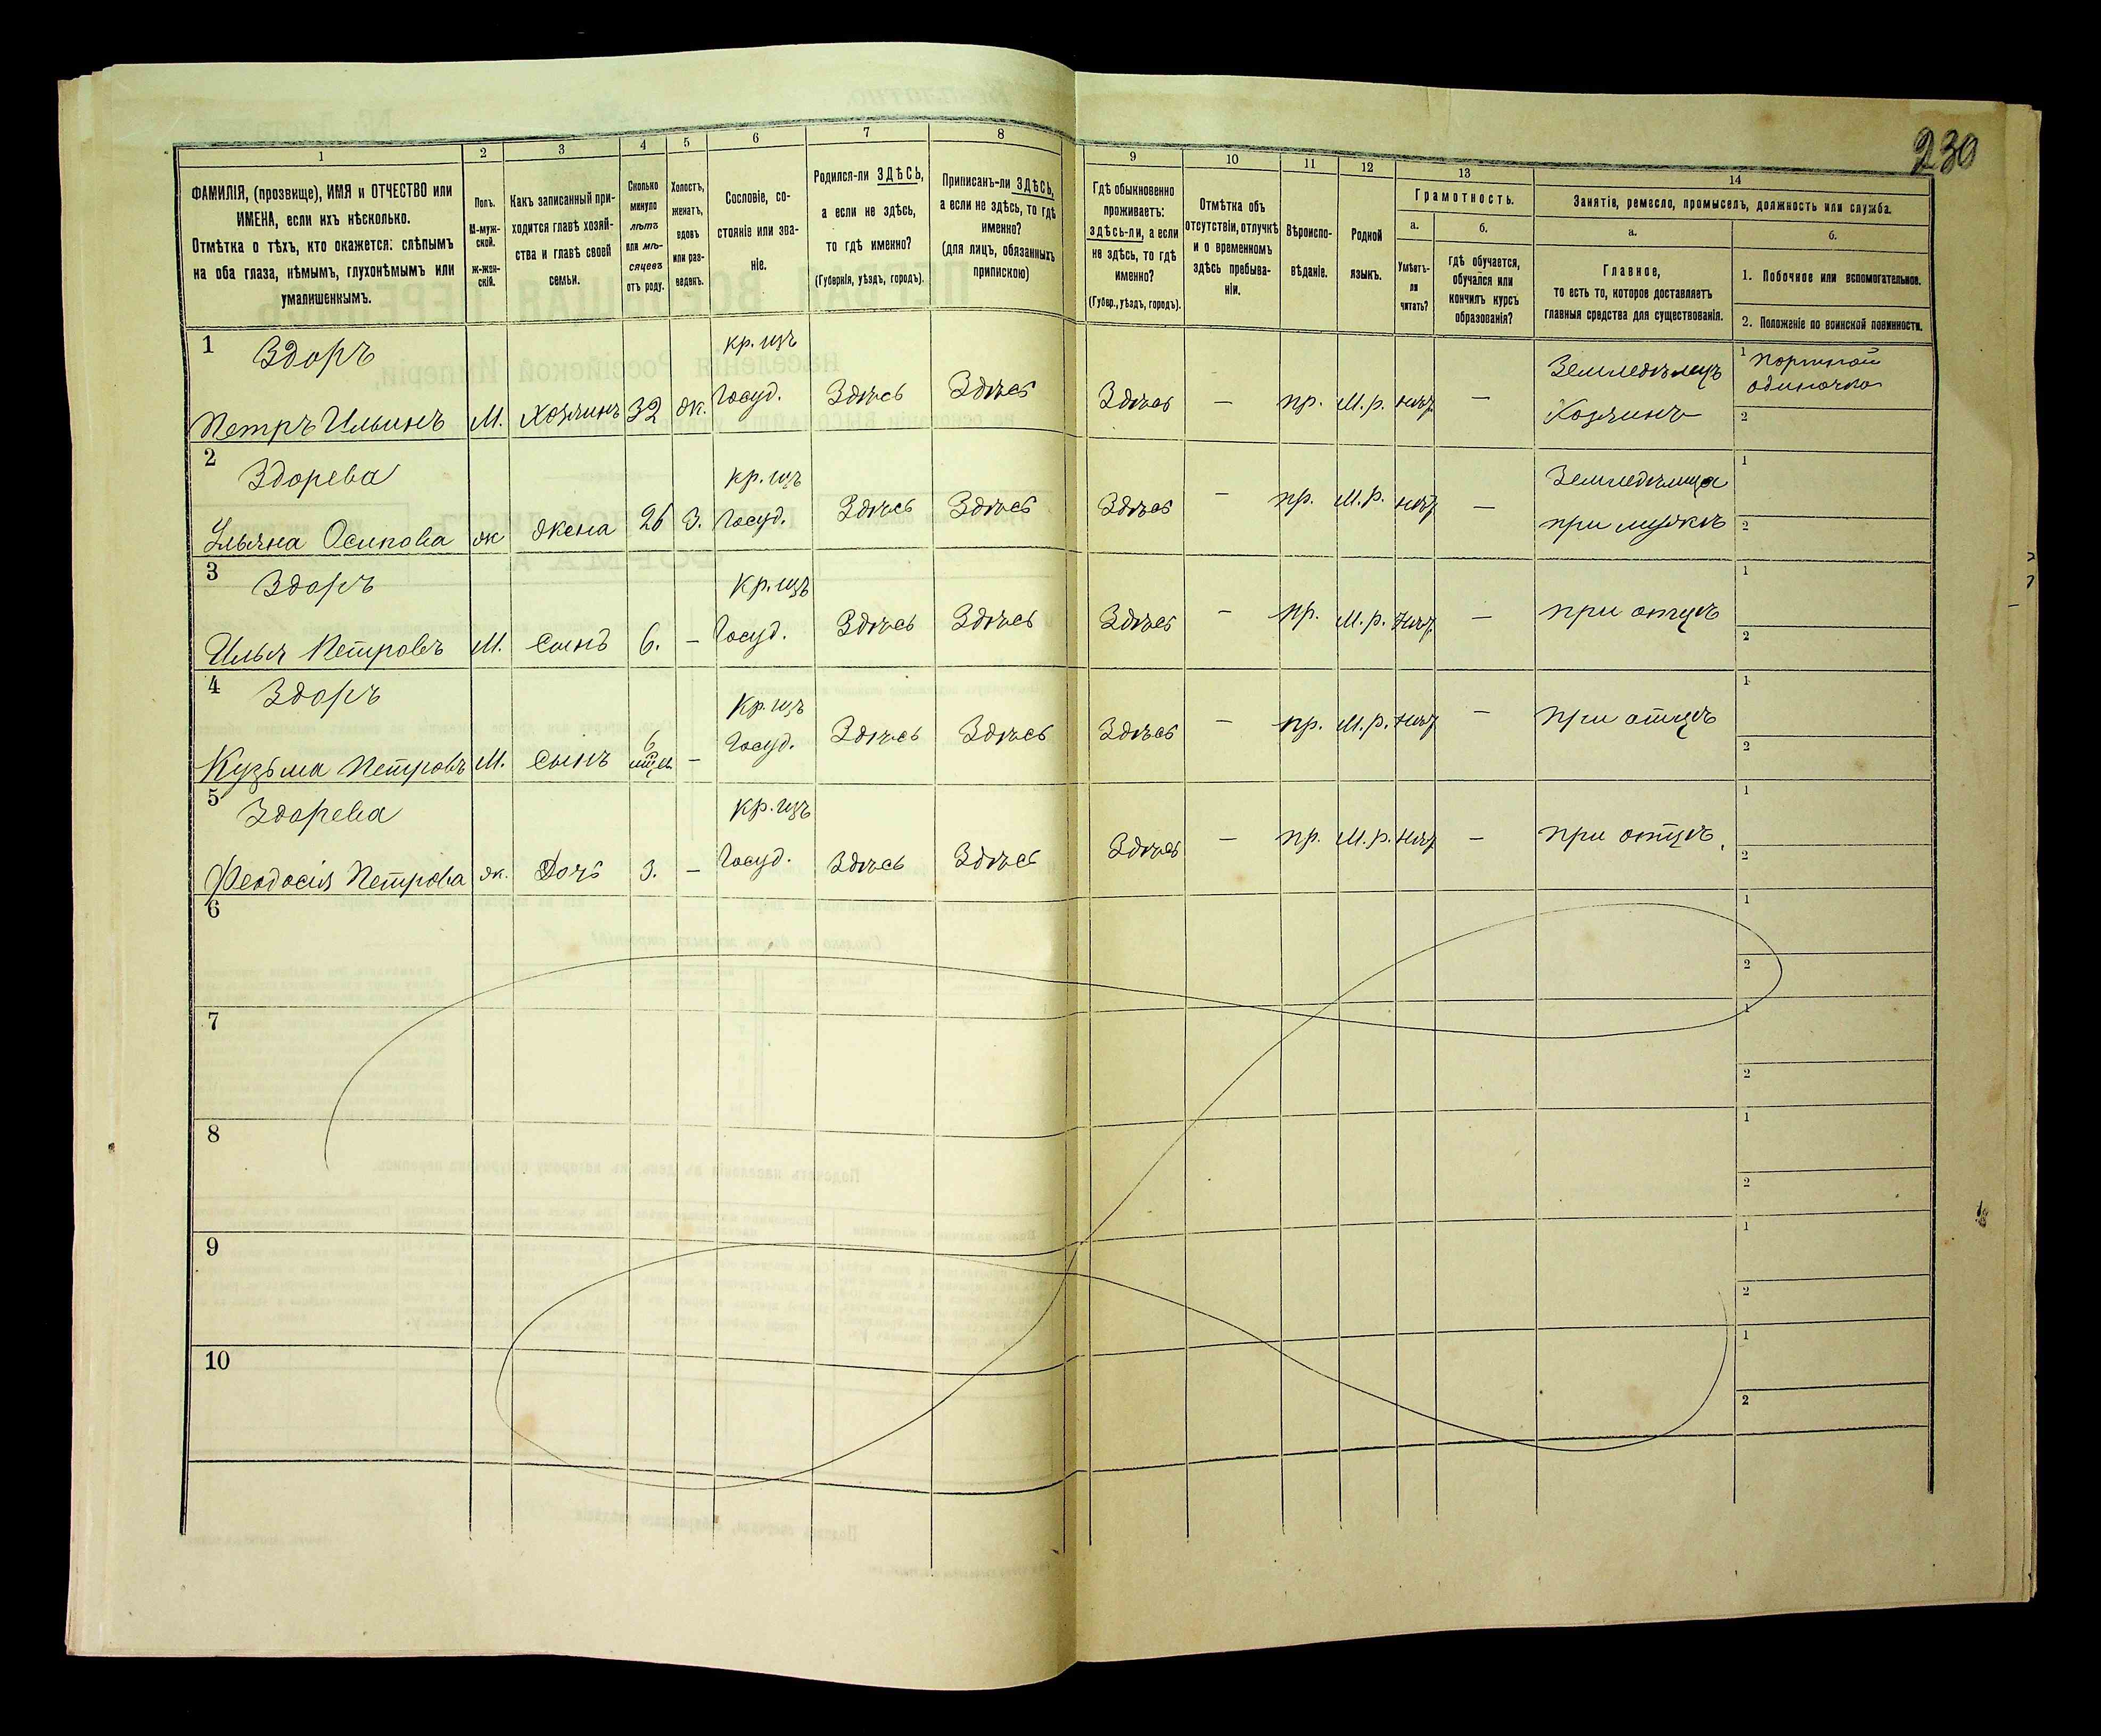 230
1
2
3
4
5
6
7
8
9
10
11
12
13
14
ФАМИЛІЯ, (прозвище), ИМЯ и ОТЧЕСТВО или
ИМЕНА, если ихъ нѣсколько.
Отмѣтка о тѣхъ, кто окажется: слѣпымъ
на оба глаза, нѣмымъ, глухонѣмымъ или
умалишеннымъ.
Полъ.
М-муж-
ской.
Ж-жен-
скій.
Какъ записанный при-
ходится главѣ хозяй-
ства и главѣ своей
семьи.
Сколько
минуло
лѣтъ
или мѣ-
сяцевъ
отъ роду.
Холостъ,
женатъ,
вдовъ
или раз-
веденъ.
Сословіе, со-
стояніе или зва-
ніе.
Родился-ли ЗДѢСЬ,
а если не здѣсь,
то гдѣ именно?
(Губернія, уѣздъ, городъ).
Приписанъ-ли ЗДѢСЬ,
а если не здѣсь, то гдѣ
именно?
(для лицъ, обязанныхъ
припискою)
Гдѣ обыкновенно
проживаетъ:
здѣсь-ли, а если
не здѣсь, то гдѣ
именно?
(Губер., уѣздъ, городъ).
Отмѣтка объ
отсутствіи, отлучкѣ
и о временномъ
здѣсь пребыва-
ніи.
Вѣроиспо-
вѣданіе.
Родной
языкъ.
Грамотность.
а.
б.
Умѣетъ-
ли
читать?
гдѣ обучается,
обучался или
кончилъ курсъ
образованія?
Занятіе, ремесло, промыселъ, должность или служба.
а.
б.
Главное,
то есть то, которое доставляетъ
главныя средства для существованія.
1. Побочное или вспомогательное.
2. Положеніе по воинской повинности.
1 Здоръ кр. изъ Земледѣлецъ 1 Портной
одиночка
Петръ Ильинъ М. Хозяинъ 32 ж. Госуд. Здѣсь Здѣсь Здѣсь — пр. М.р. нѣт — Хозяинъ 2
2 Здорева кр. изъ Земледѣлица 1
Ульяна Осипова ж жена 26 З. Госуд. Здѣсь Здѣсь Здѣсь — пр. М.р. нѣт — при мужѣ 2
3 Здоръ Кр. изъ 1
Илья Петровъ М. Сынъ 6. — Госуд. Здѣсь Здѣсь Здѣсь — пр. М.р. Нѣт. — при отцѣ 2
4 Здоръ Кр. изъ 1
Кузьма Петровъ М. Сынъ 6 мцсъ — Госуд. Здѣсь Здѣсь Здѣсь — пр. М.р. Нѣт — при отцѣ 2
5 Здорева Кр. изъ 1
Феодосія Петрова ж. Дочь 3. — Госуд. Здѣсь Здѣсь Здѣсь — пр. М.р. Нѣт — при отцѣ. 2
6 1
2
7 1
2
8 1
2
9 1
2
10 1
2